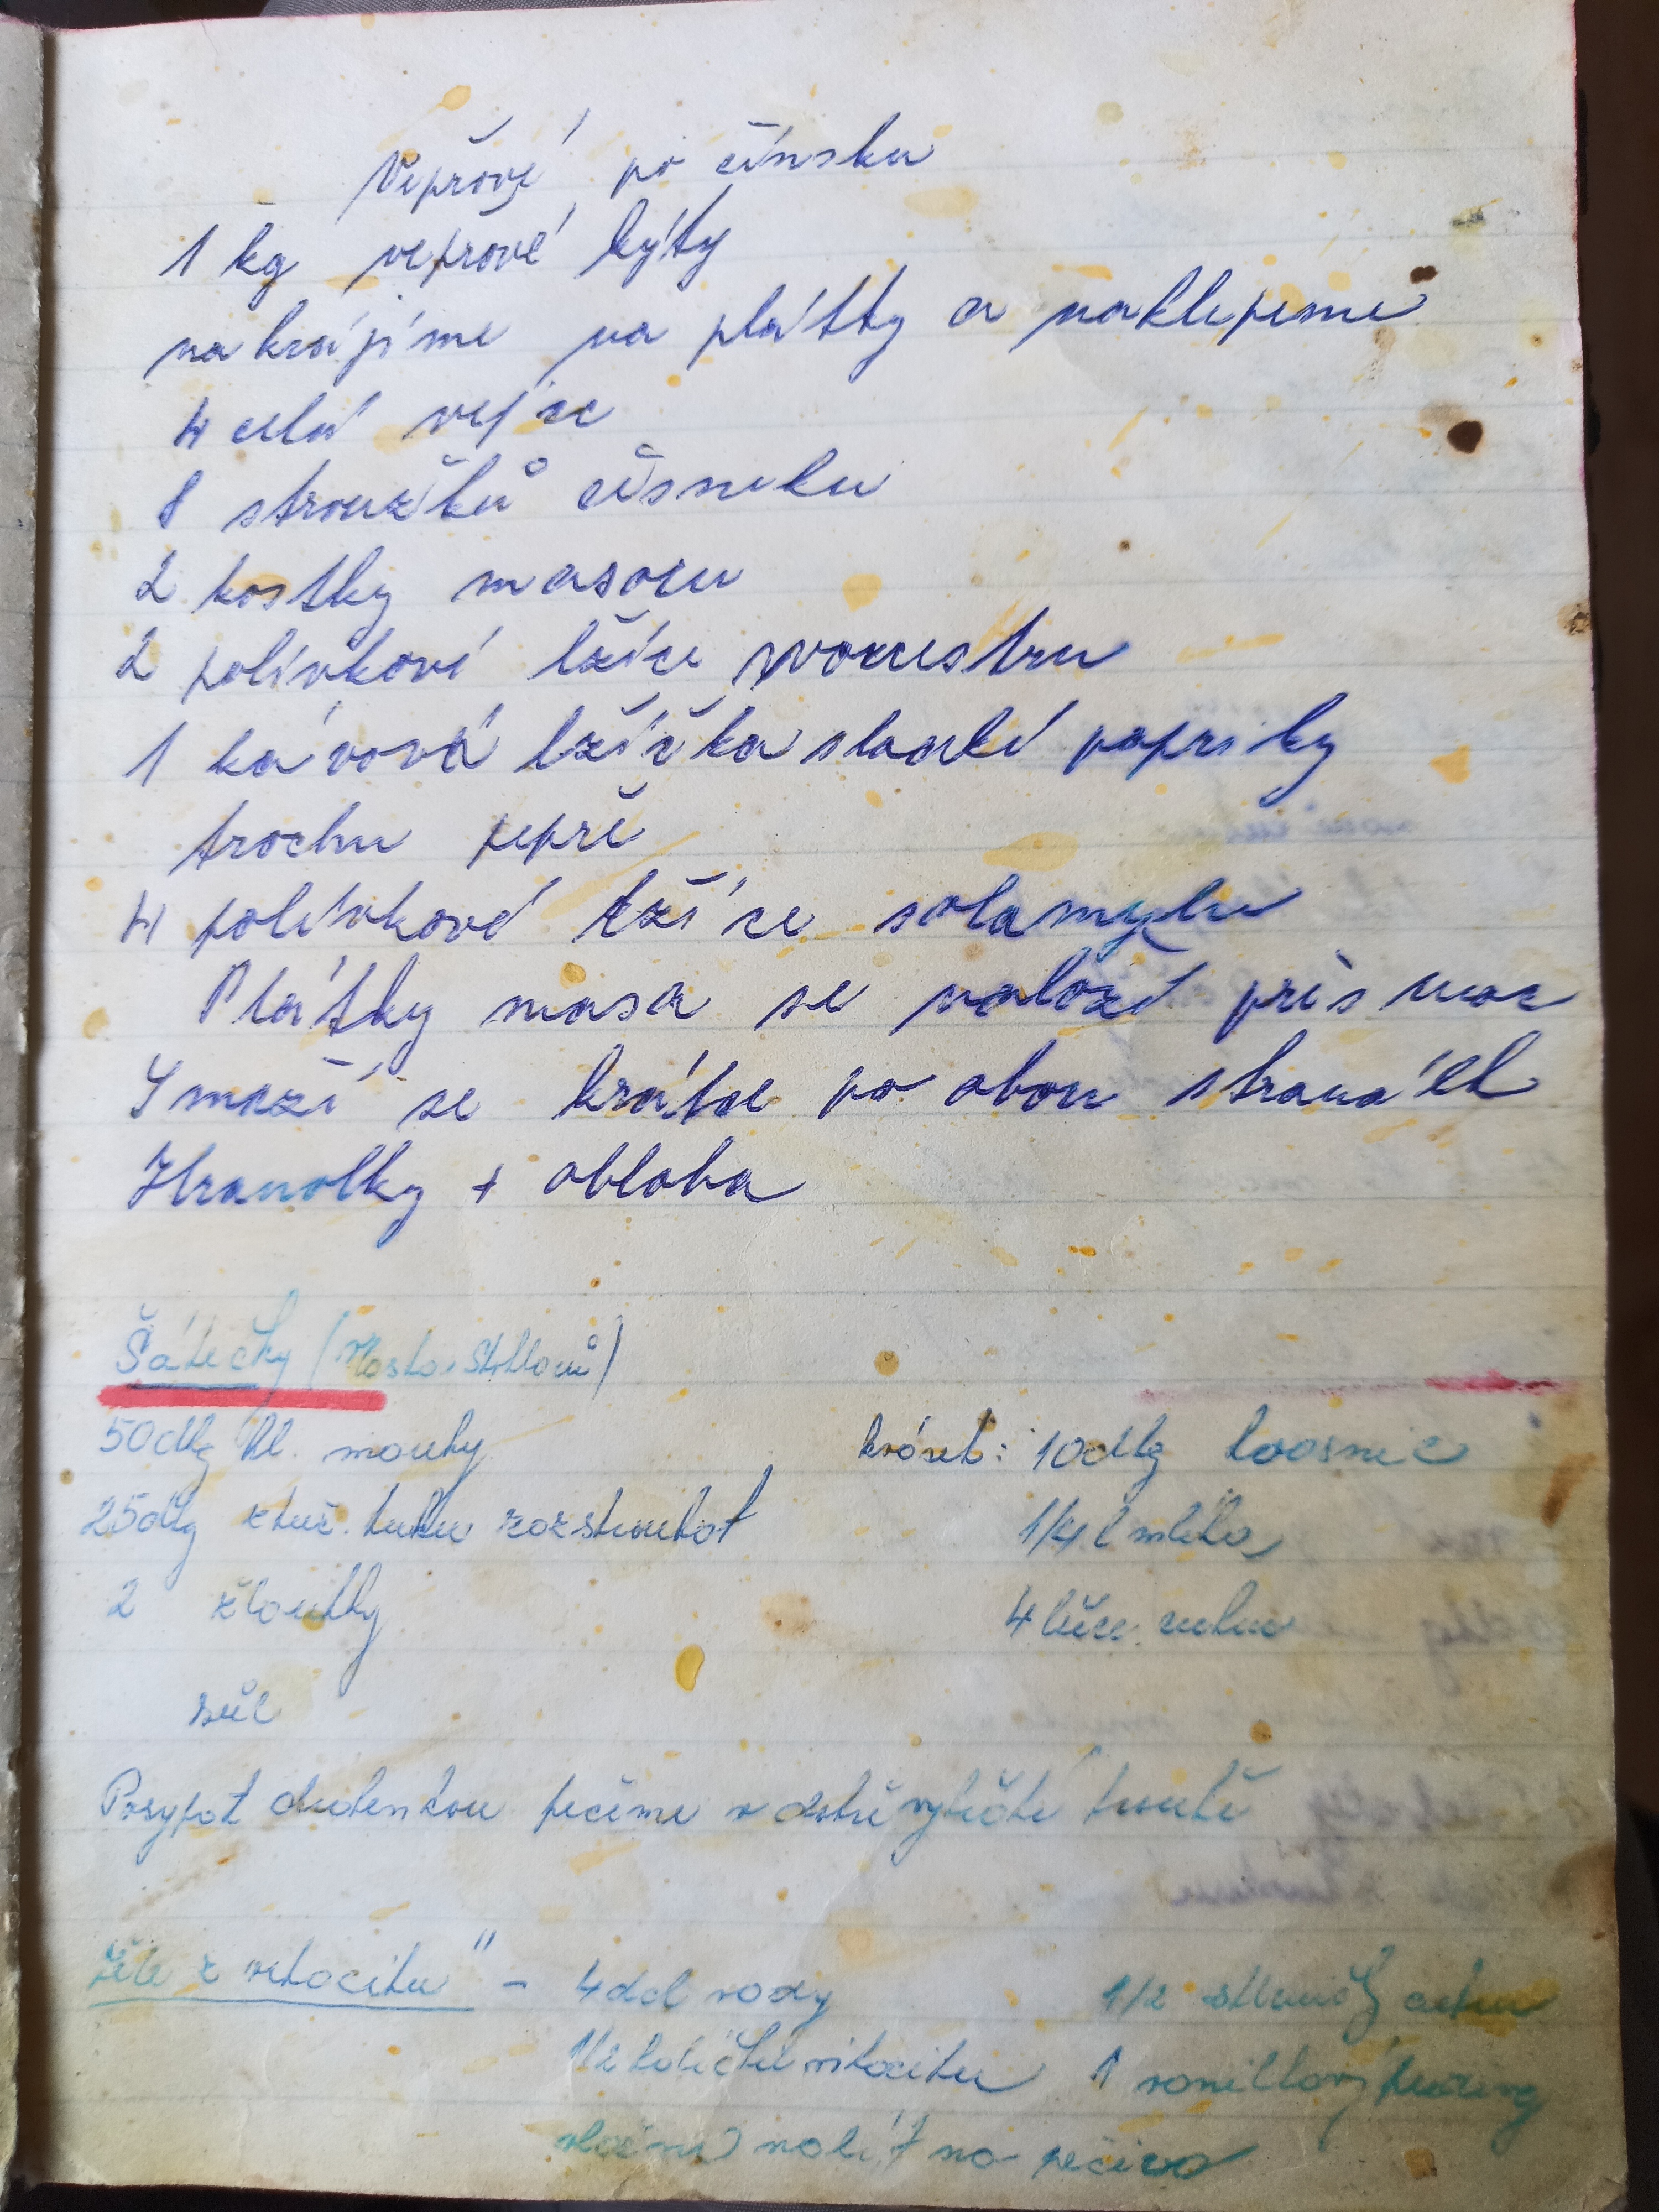 Vepřové po čínsku
1 kg vepřové kýty
nakrájíme na plátky a naklepeme
4 celá vejce
8 stroužků česneku
2 kostky masoxu
2 polévkové lžíce worcestru
1 kávová lžíčka sladké papriky
trochu pepře
4 polévkové lžíce solamylu
Plátky masa se naloží přes noc
Smaží se krátce po obou stranách
Hranolky + obloha
Šátečky (
50dkg hl. mouky
25dkg ztuž. tuku rozstrouhat
2 žloutky
sůl
króset: 10dkg
1/4 l mléka
4 lžíce cukru
Posypat pečeme v troubě
Žele z vitacitu" - 4dcl vody
1/2 skleničky cukru
1/2 vitacitu 1 vanilkový
nalít na pečivo